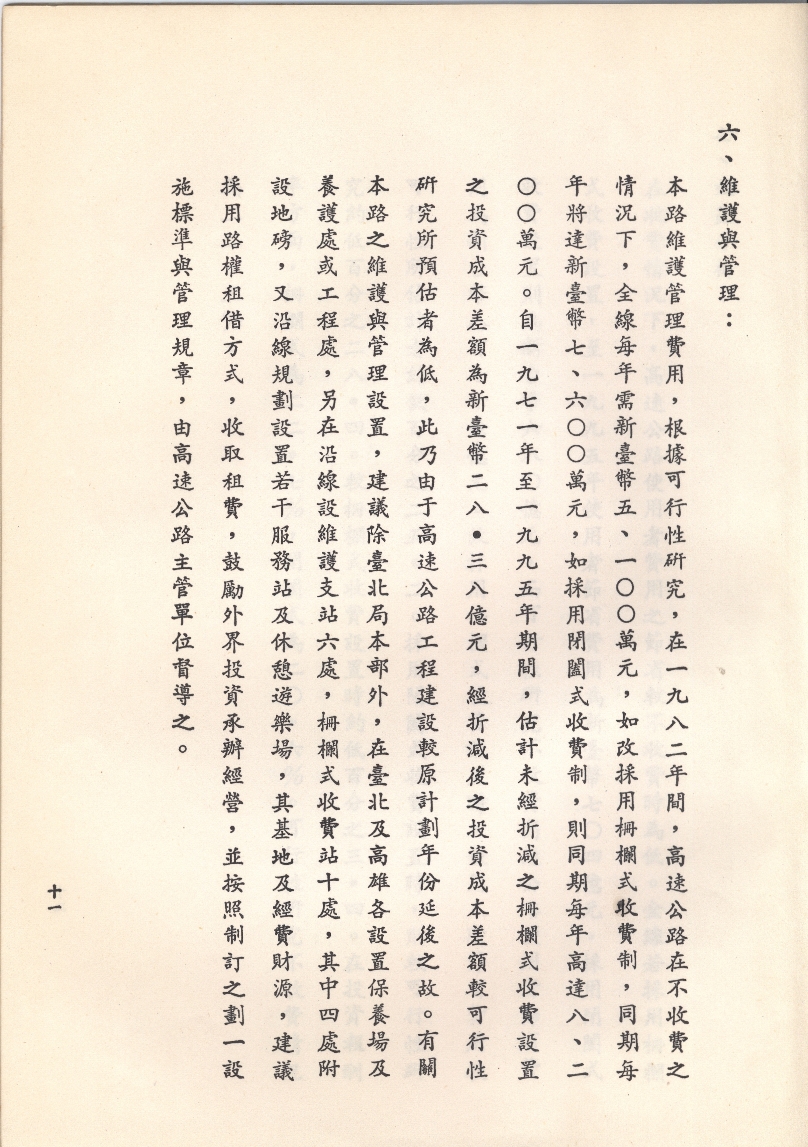 六、維護與管理：
本路維護管理費用，根據可行性研究，在一九八二年間，高速公路在不收費之
情況下，全線每年需新臺幣五、一〇〇萬元，如改採用柵欄式收費制，同期每
年將達新臺幣七、六〇〇萬元，如採用閉闔式收費制，則同期每年高達八、二
〇〇萬元。自一九七一年至一九九五年期間，估計未經折減之柵欄式收費設置
之投資成本差額為新臺幣二八•三八億元，經折減後之投資成本差額較可行性
研究所預估者為低，此乃由于高速公路工程建設較原計劃年份延後之故。有關
本路之維護與管理設置，建議除臺北局本部外，在臺北及高雄各設置保養場及
養護處或工程處，另在沿線設維護支站六處，柵欄式收費站十處，其中四處附
設地磅，又沿線規劃設置若干服務站及休憩遊樂場，其基地及經費財源，建議
採用路權租借方式，收取租費，鼓勵外界投資承辦經營，並按照制訂之劃一設
施標準與管理規章，由高速公路主管單位督導之。
十一